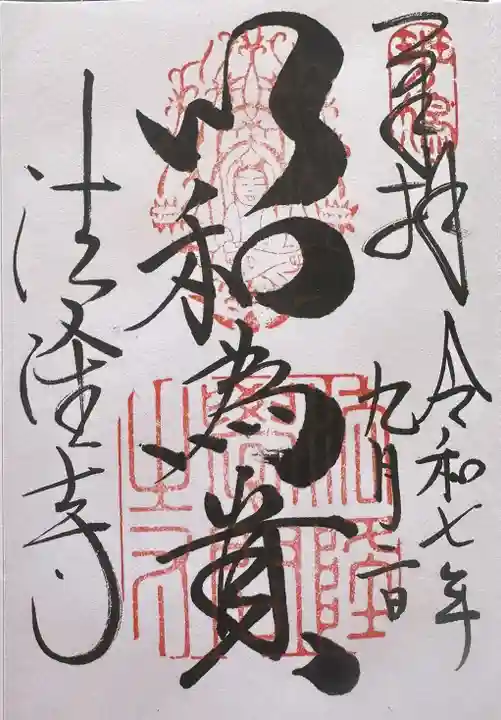 奉拝
令和七年
九月二日
以和為貴
法隆寺
斑鳩